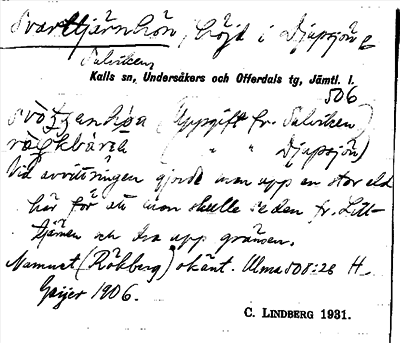 Svarttjärnhön, höjd i Djupsjön
Salviken
Kalls sn, Undersåkers och Offerdals tg, Jämtl. l.
506
(Uppgift fr. Salviken)
( " " Djupsjön)
Vid avvittringen gjorde man upp en stor eld
här för att man skulle se den fr. Litt-
tjärnen och dra upp gränsen.
Namnet (Rökberg) okänt. Ulma 508:26 H.
Geijer 1906.
C. LINDBERG 1931.